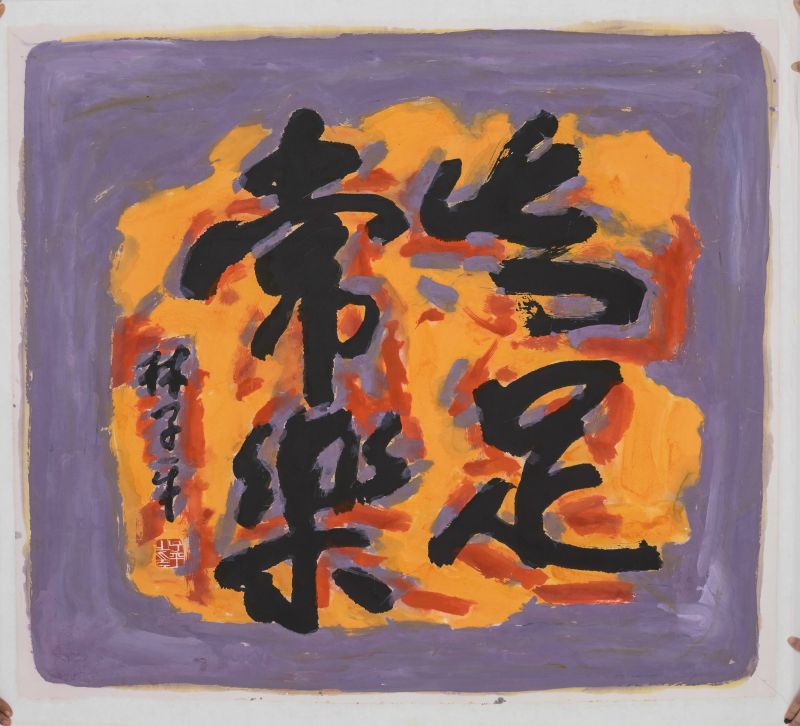 知足
常樂
林子平